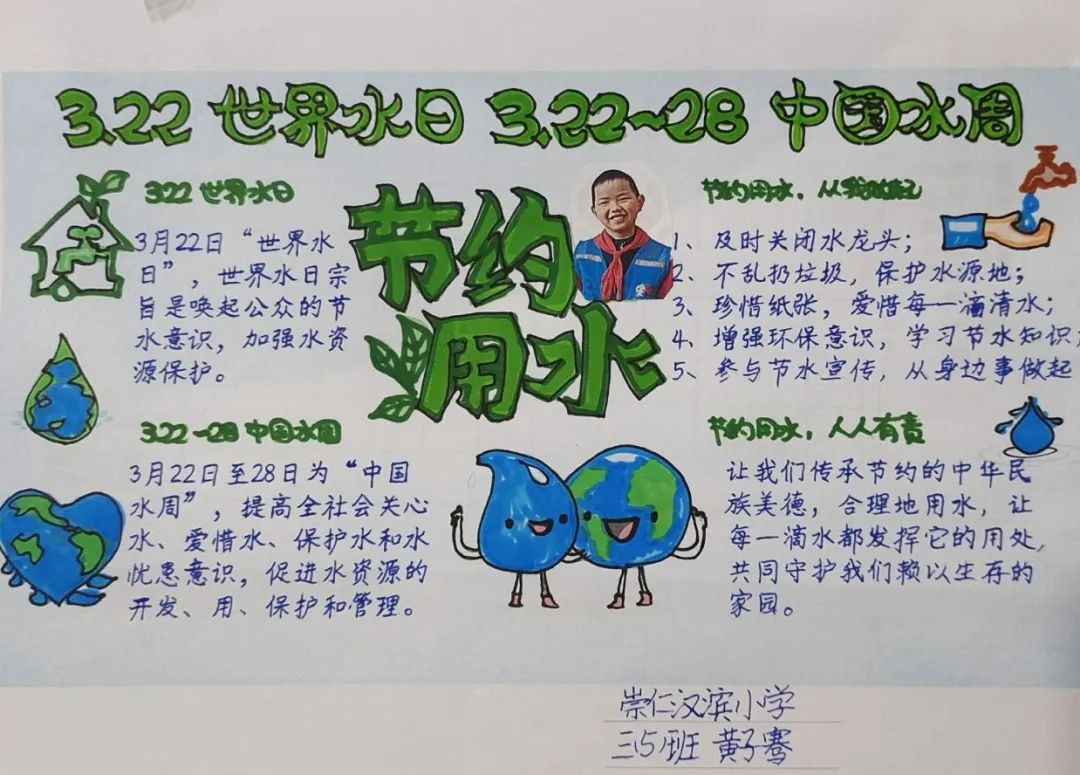 3.22 世界水日 3.22~28 中国水周
3.22 世界水日
3月22日“世界水
日”，世界水日宗
旨是唤起公众的节
水意识，加强水资
源保护。
节约
用水
节约用水，从我做起
1、及时关闭水龙头；
2、不乱扔垃圾，保护水源地；
3、珍惜纸张，爱惜每一滴清水；
4、增强环保意识，学习节水知识；
5、参与节水宣传，从身边事做起
3.22-28 中国水周
3月22日至28日为“中国
水周”，提高全社会关心
水、爱惜水、保护水和水
忧患意识，促进水资源的
开发、用、保护和管理。
节约用水，人人有责
让我们传承节约的中华民
族美德，合理地用水，让
每一滴水都发挥它的用处，
共同守护我们赖以生存的
家园。
崇仁汉滨小学
三.5班 黄子骞